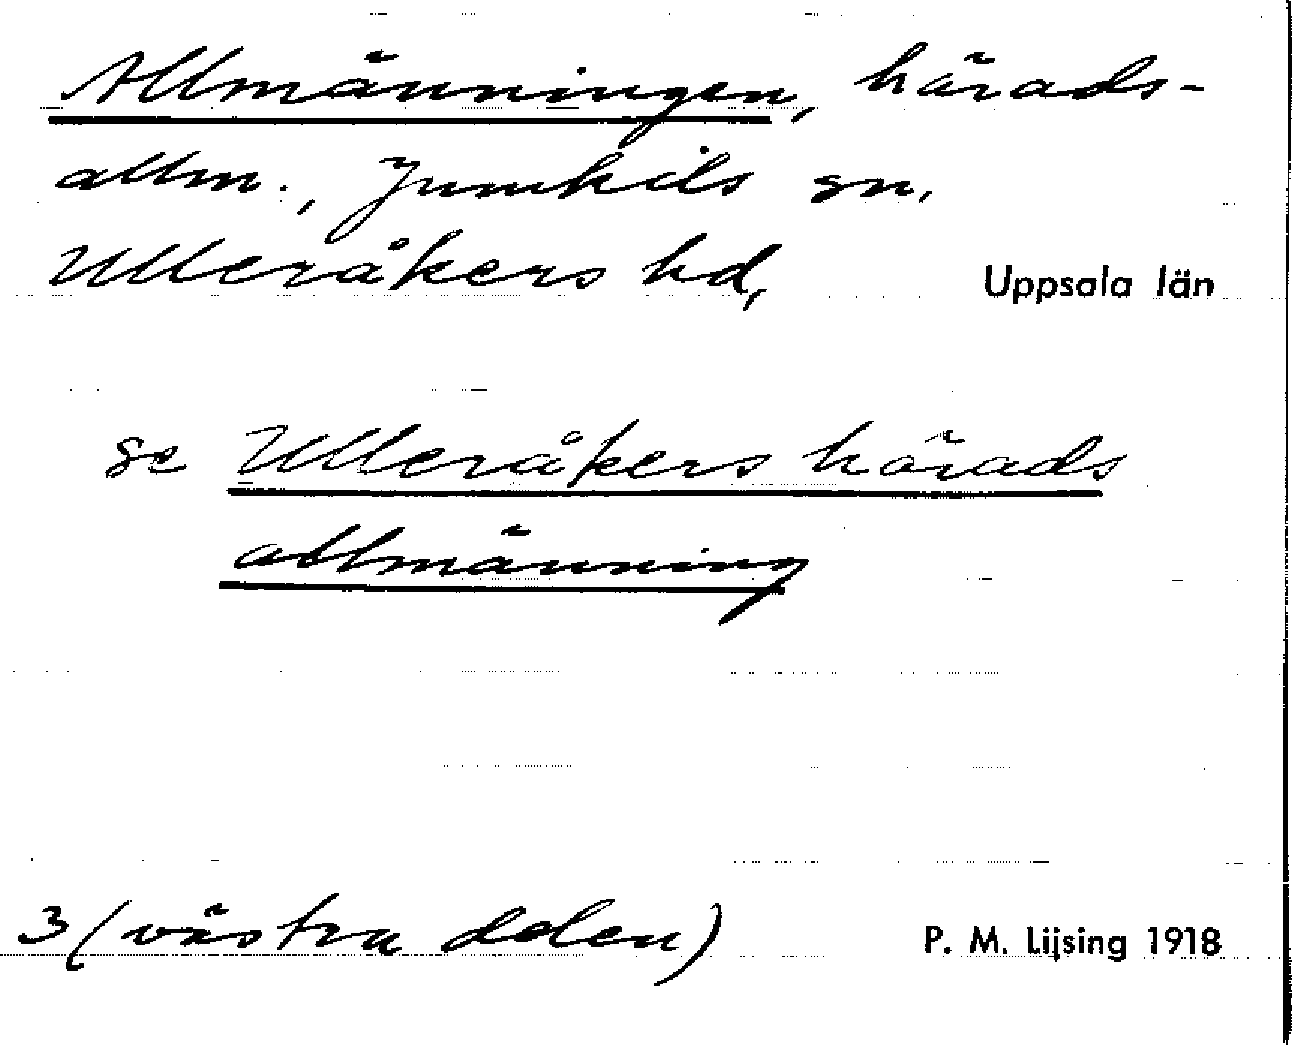 Allmänningen, härads-
allm., Jumkils sn.
Ulleråkers hd, Uppsala län
se Ulleråkers härads
allmänning
3 (västra delen) P. M. Lijsing 1918